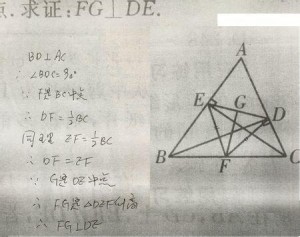 点.求证:FG⊥DE.
BD⊥AC
∠BDC=90°
∵ F是BC中点
∴ DF=½BC
同理 ZF=½BC
∴ DF=ZF
∵ G是DZ中点
∴ FG是△DZF的高
∴ FG⊥DZ
A
E
G
D
B
F
C